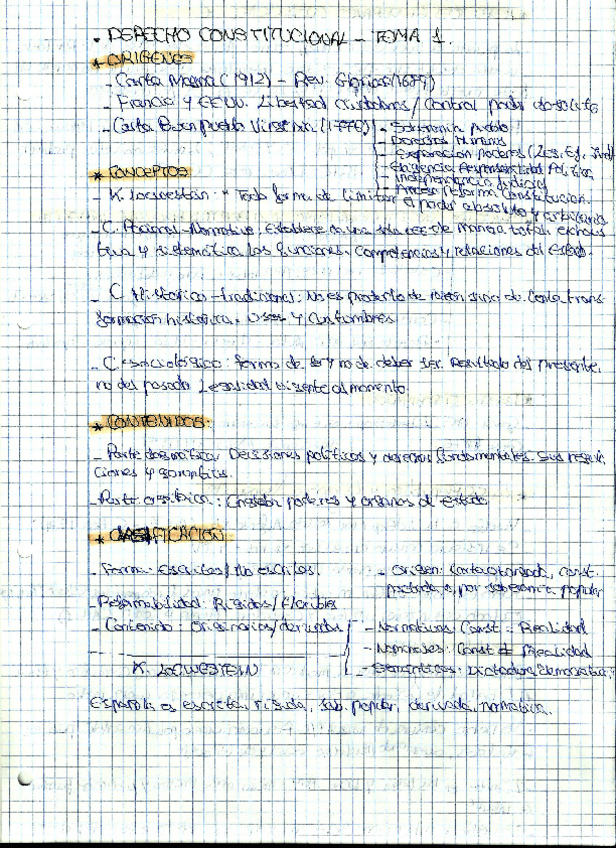 . DERECHO CONSTITUCIONAL - TEMA 1.
* ORIGENES
- Carta Magna (1912) - Rev. Gloriosa (1689)
- Francia y EEUU. Libertad ciudadanos / Control poder absoluto
- Carta Buen pueblo Virginia (1776)
- Soberanía pueblo
- Derechos Humanos
- Separación poderes (Leg, Ej, Jud)
- Exigencia Responsabilidad Política
- Independencia Judicial
- Reforma Constitucion.
* CONCEPTOS
- K. Locwestein: " Toda forma de limitar el poder absoluto y arbitrario
- C. Racional-Normativo: Establece de una sola vez de manera total, exhaus
tiva y sistemática las funciones, competencias y relaciones del estado.
- C Histórico-tradicional: No es producto de razón sino de lenta trans
formación histórica. Usos y Costumbres
- C sociológico: forma de ser y no de deber ser. Resultado del presente,
no del pasado. Legalidad vigente al momento.
* CONTENIDOS:
- Parte dogmática: Decisiones políticas y derechos fundamentales. Sus regula
ciones y garantías.
- Parte orgánica: Crean poderes y organos de estado
* CLASIFICACION
- Forma: Escritas / No escritas.
- Reformabilidad: Rígidas / flexibles
- Contenido: Originarias / derivadas
K. LOCWESTEIN
- Origen: Carta otorgada, const.
pactada, o, por soberanía popular
- Normativas: Const = Realidad
- Nominales: Const ≠ Realidad
- Semánticas: Dictadura
Española es escrita, rígida, sob. popular, derivada, normativa.